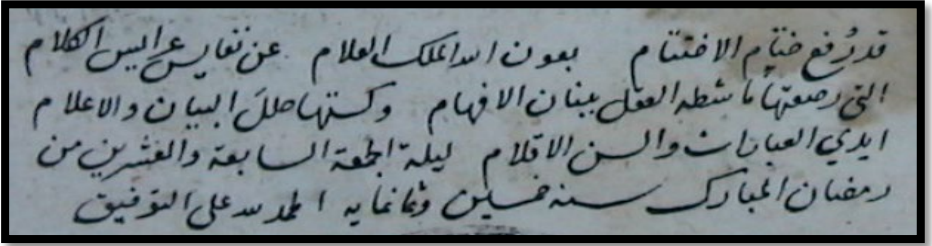 قد رُفع ختام الاختتام بعون الله الملك العلام عن نفايس عرايس الكلام
التي رصعتها ماشطه العقل ببنان الافهام وكستها حلل البيان والاعلام
ايدي العبارات والسن الاقلام ليلة الجمعة السابعة والعشرين من
رمضان المبارك سنه خمسين وثمانمايه الحمد لله على التوفيق